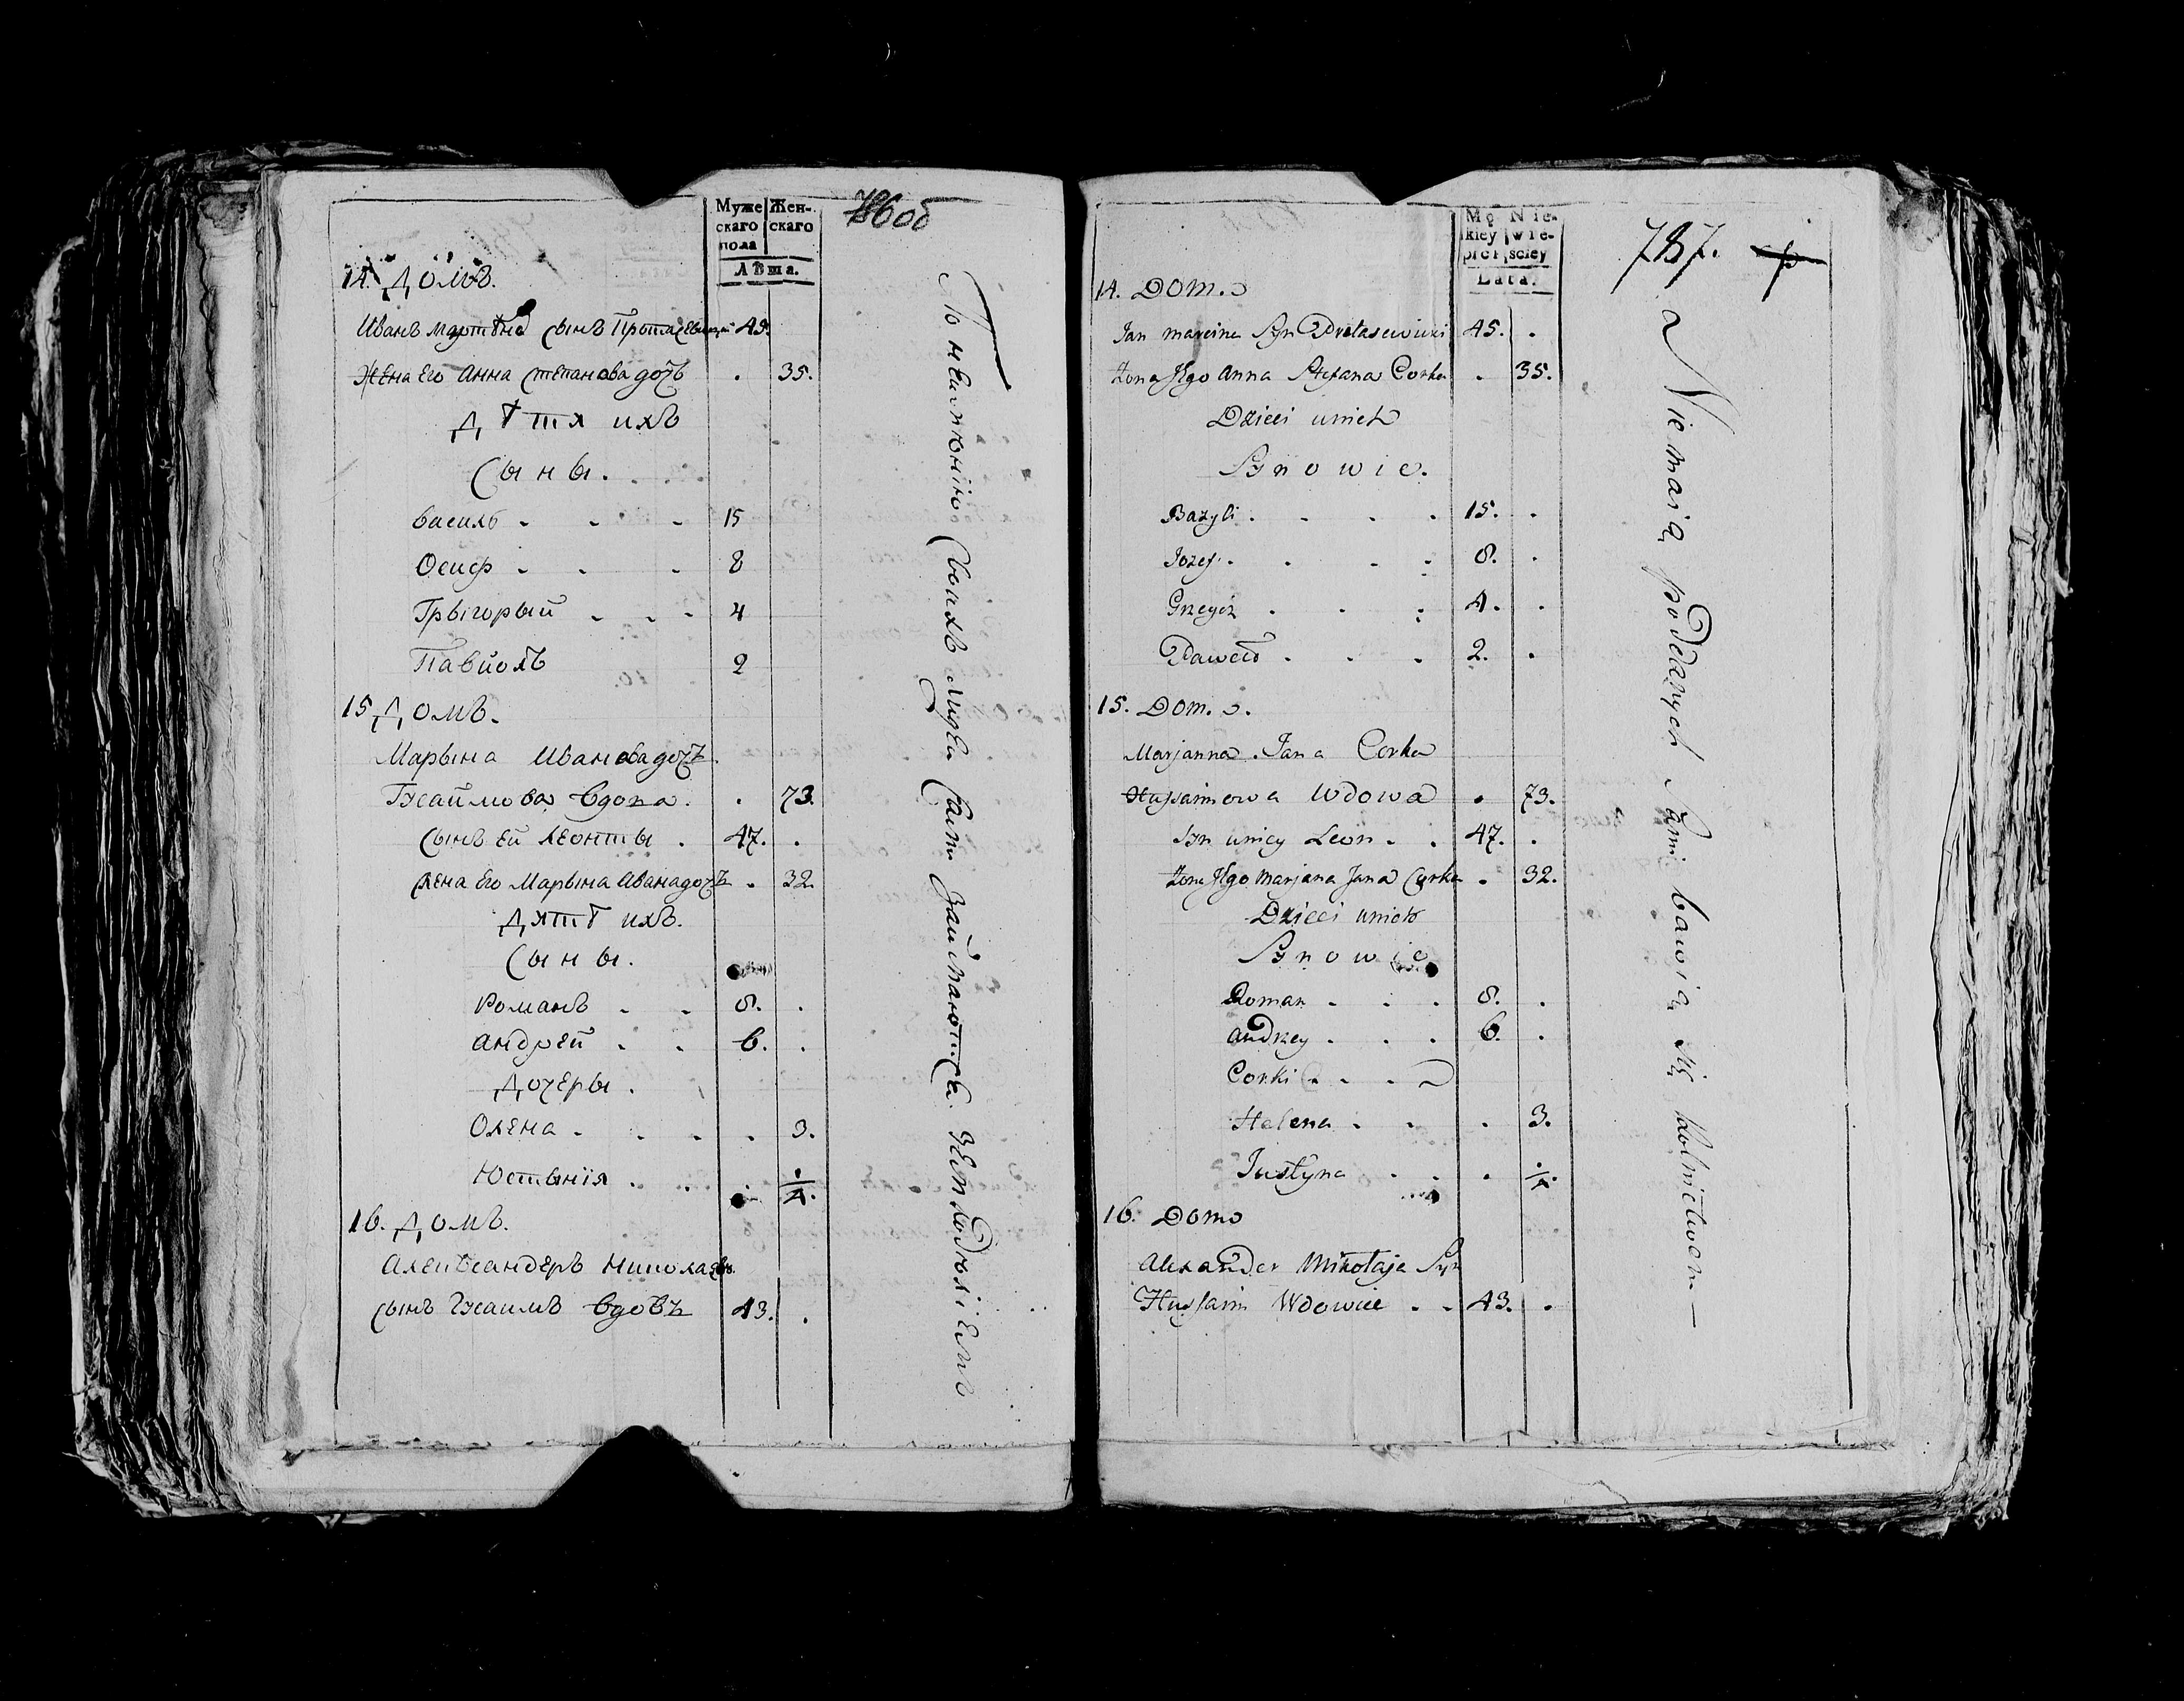 Муже Жен-
скаго скаго
пола
Лѣта.
786 об
14. Домъ.
Иванъ Мартѣна сынъ Протасевицкий 45.
Жена Его Анна Степанова дочь . 35.
Дѣтя ихъ
Сыны.
Василь . . . 15
Осиф . . . 8
Грыгорый . . . 4
Павйолъ 2
15 Домъ.
Марына Иванова дочъ
Гусаймова вдова . . 73.
Сынъ ей Леонты . 47. .
Жена Его Марына Ивана дочъ . 32.
Дятѣ ихъ.
Сыны.
Романъ . . 8. .
Андрей . . 6. .
Дочеры .
Олена . . . . 3.
Юстынія . . . 1/4.
16. Домъ.
Александеръ Николаевъ
сынъ Гусаимъ вдовъ 43. .
По неимѣнію своихъ людей сами займаются земледѣліемъ
Mę Nie-
kiey wie-
płci sciey
Lata.
787.
14. Dom.
Jan Marcina Syn Protasewicki 45. .
Zona Jego Anna Stefana Corka . 35.
Dzieci unich
Synowie.
Bazyli . . . . 15. .
Jozef . . . . 8. .
Grzegorz . . . 4. .
Paweł . . . 2. .
15. Dom.
Marjanna Jana Corka
Hussaimowa Wdowa . 73.
Syn unicy Leon . . 47. .
Zona Jego Marjana Jana Corka . 32.
Dzieci unich
Synowie
Roman . . . 8. .
Andrzey . . . 6. .
Corki
Helena . . . 3.
Justyna . . . 1/4.
16. Dom
Alexander Mikołaja Syn
Hussaim Wdowiec . . 43. .
Nie maią poddanych Sami bawią się Rolnictwem —